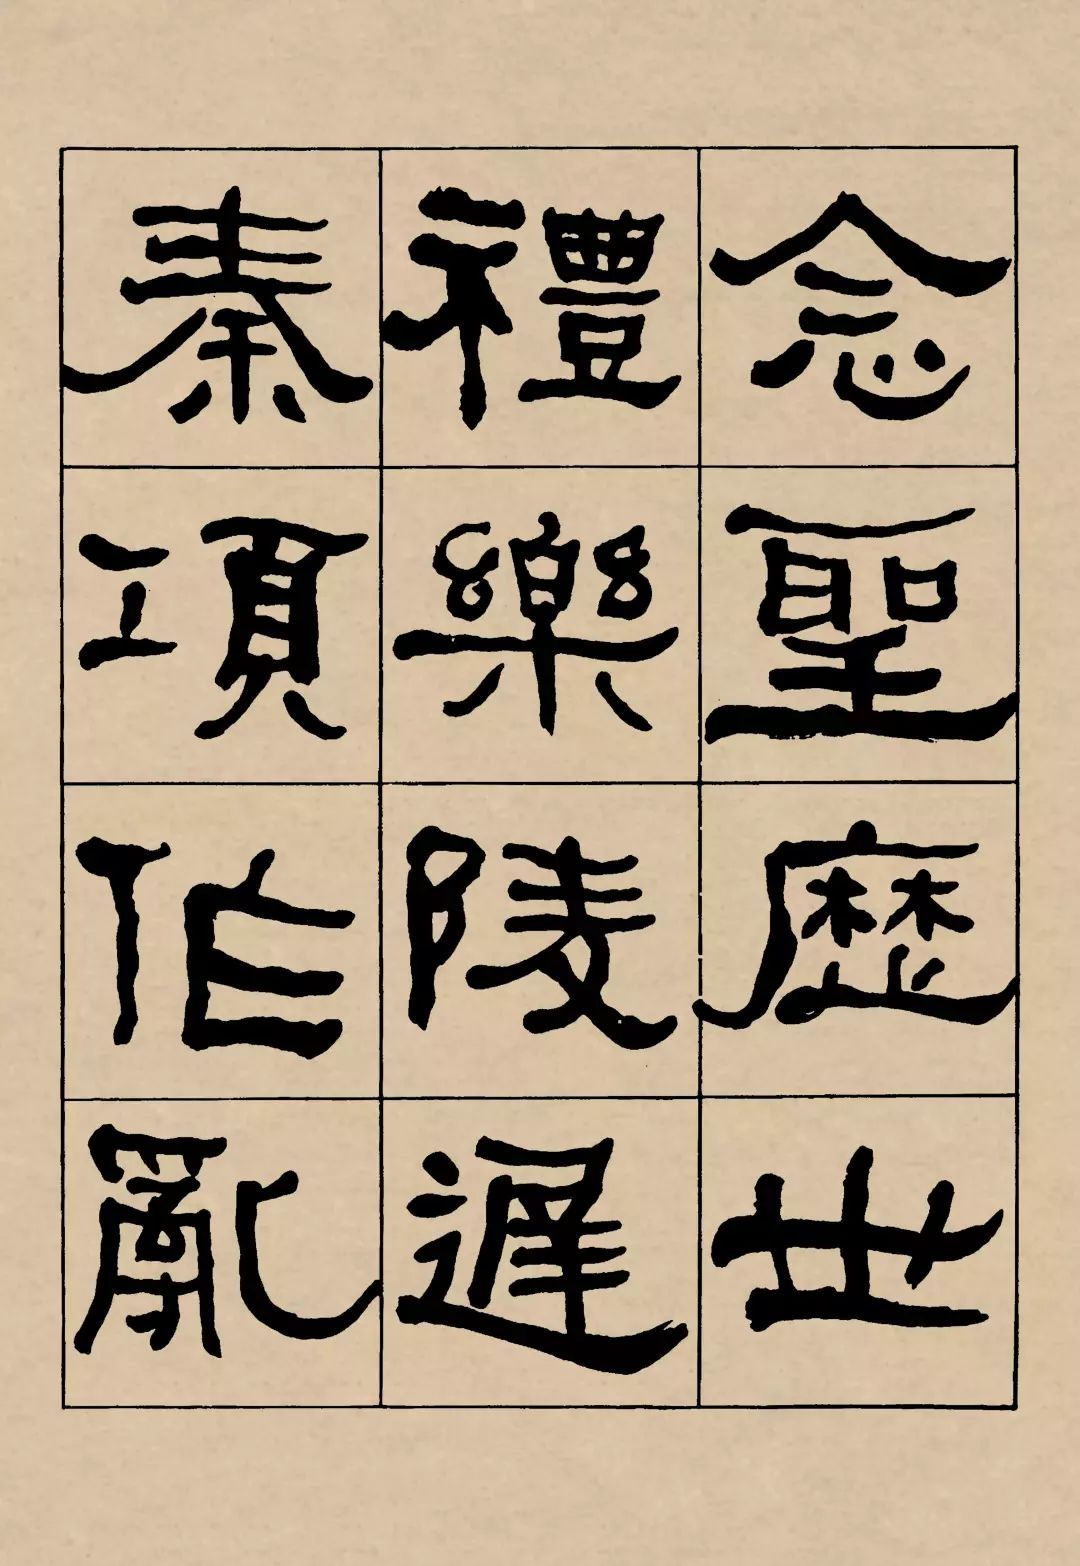 念聖歷世
禮樂陵遲
秦項作亂